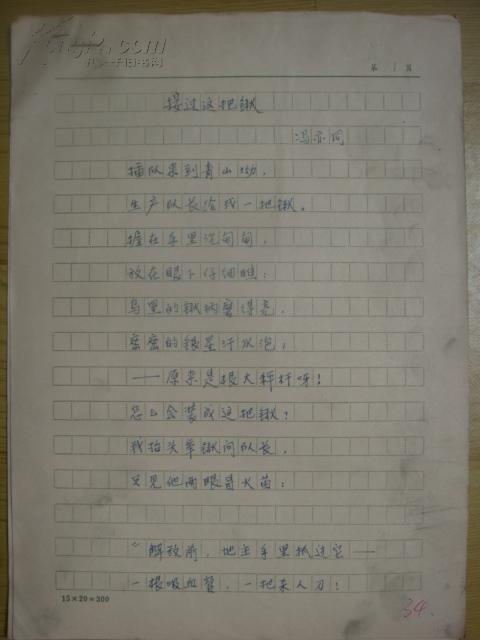 第 1 页
接过这把锹
冯亦同
插队来到青山坳,
生产队长给我一把锹。
握在手里沉甸甸,
放在眼下仔细瞧:
乌黑的锹柄磨得亮,
密密的银星汗水泡;
——原来是根大秤杆呀!
怎么会装成这把锹?
我抬头举锹问队长,
只见他两眼冒火苗:
"解放前,地主手里抓这它——
一根吸血管,一把杀人刀!
15×20=300
34.